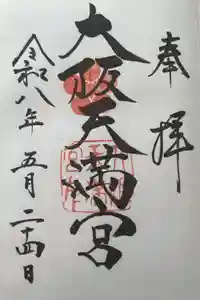 奉拝
大阪天満宮
令和八年五月二十四日